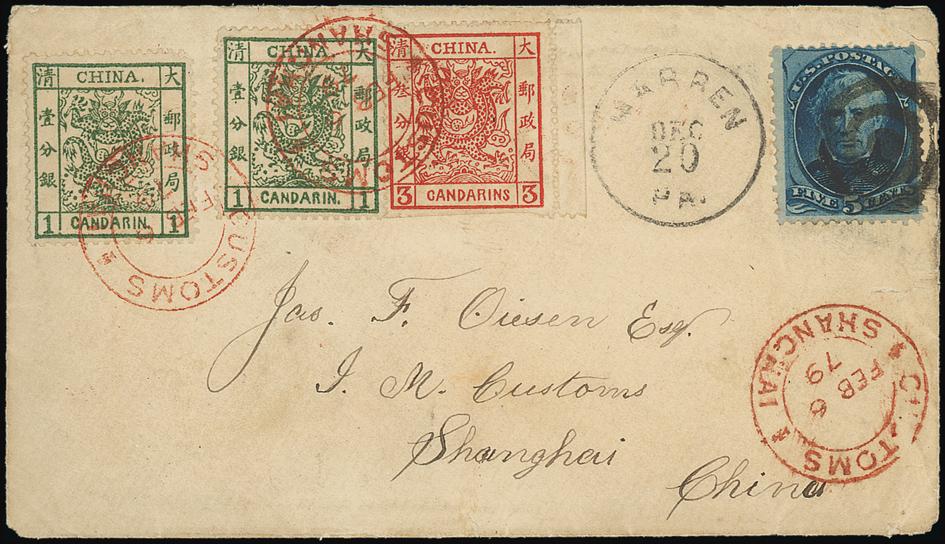 CHINA.
大清
郵政局
壹分銀
1 CANDARIN. 1
CHINA.
大清
郵政局
壹分銀
1 CANDARIN. 1
大清
郵政局
叁分銀
3 CANDARINS 3
WARREN
DEC
20
PA.
U.S. POSTAGE
FIVE 5 CENTS
Jas. F. Oiesen Esq.
I. M. Customs
Shanghai
China
CUSTOMS
SHANGHAI
FEB 6
79